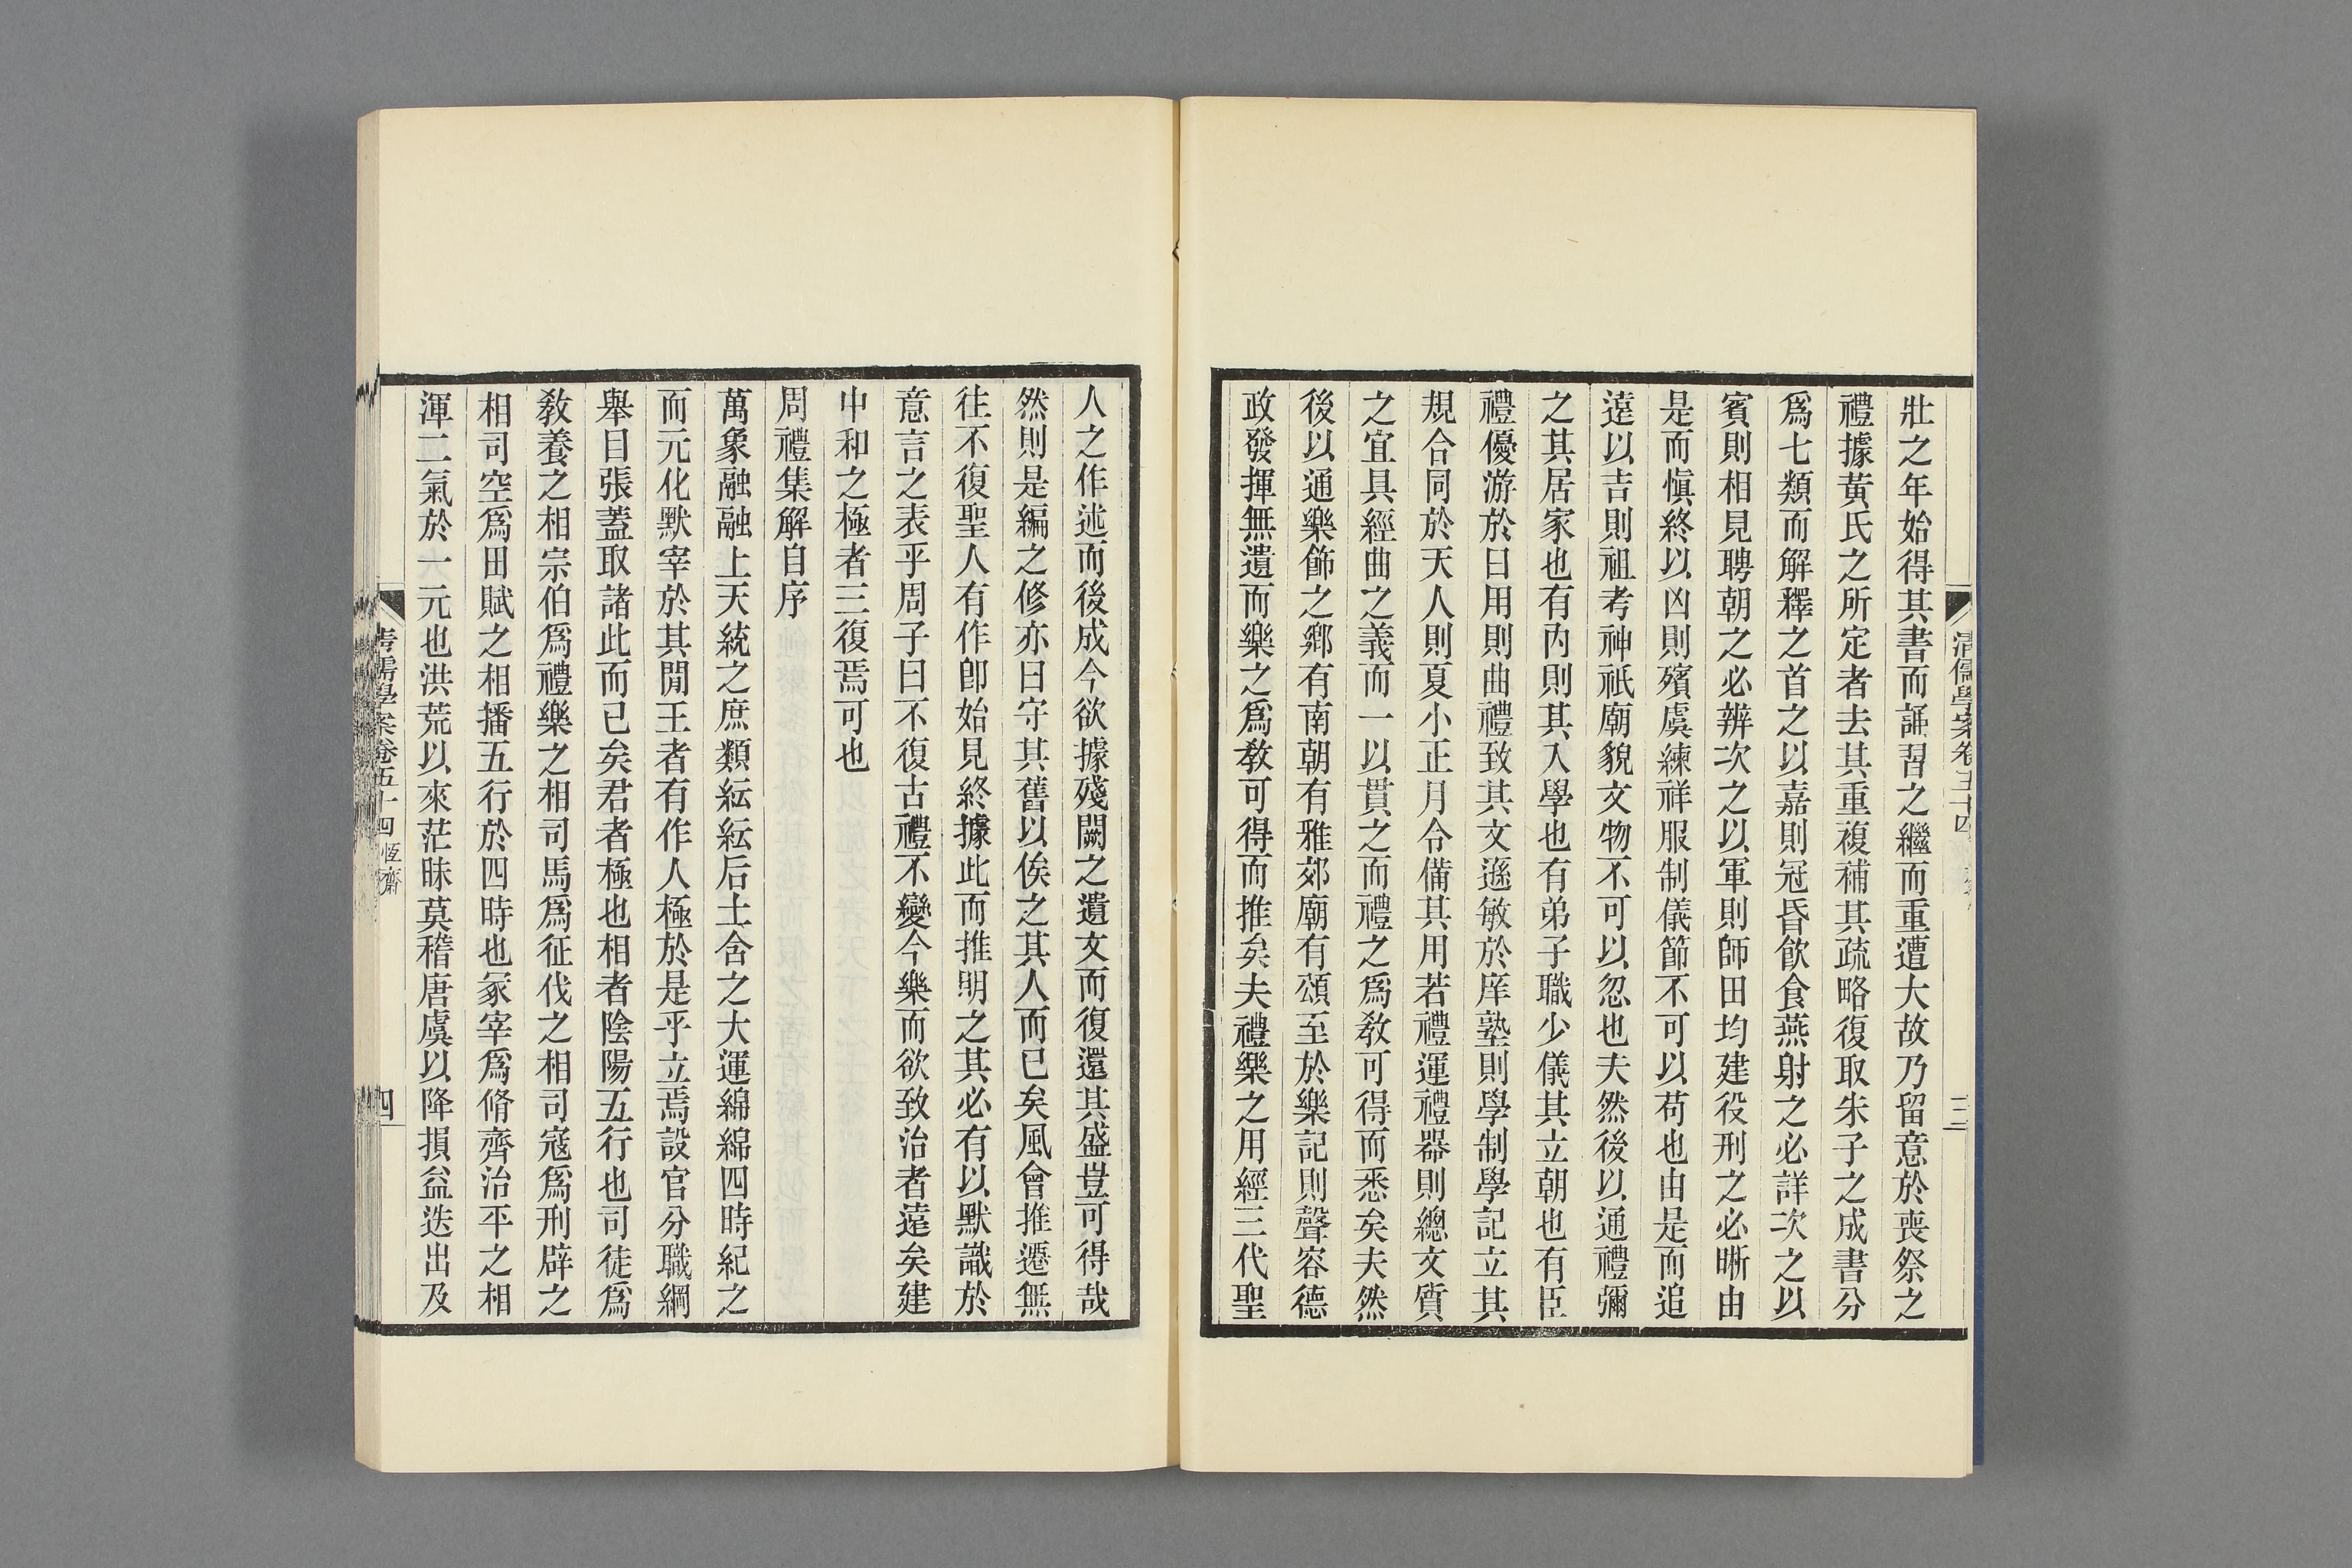 壯之年始得其書而誦習之繼而重遭大故乃留意於喪祭之
禮據黃氏之所定者去其重複補其疏略復取朱子之成書分
爲七類而解釋之首之以嘉則冠昏飮食燕射之必詳次之以
賓則相見聘朝之必辨次之以軍則師田均建役刑之必晰由
是而愼終以凶則殯虞練祥服制儀節不可以苟也由是而追
遠以吉則祖考神祇廟貌文物不可以忽也夫然後以通禮彌
之其居家也有內則其入學也有弟子職少儀其立朝也有臣
禮優游於日用則曲禮致其文遜敏於庠塾則學制學記立其
規合同於天人則夏小正月令備其用若禮運禮器則總文質
之宜具經曲之義而一以貫之而禮之爲敎可得而悉矣夫然
後以通樂飾之鄉有南朝有雅郊廟有頌至於樂記則聲容德
政發揮無遺而樂之爲敎可得而推矣夫禮樂之用經三代聖
人之作述而後成今欲據殘闕之遺文而復還其盛豈可得哉
然則是編之修亦曰守其舊以俟之其人而已矣風會推遷無
往不復聖人有作卽始見終據此而推明之其必有以默識於
意言之表乎周子曰不復古禮不變今樂而欲致治者遠矣建
中和之極者三復焉可也
周禮集解自序
萬象融融上天統之庶類紜紜后土含之大運綿綿四時紀之
而元化默宰於其閒王者有作人極於是乎立焉設官分職綱
舉目張蓋取諸此而已矣君者極也相者陰陽五行也司徒爲
敎養之相宗伯爲禮樂之相司馬爲征伐之相司寇爲刑辟之
相司空爲田賦之相播五行於四時也冢宰爲脩齊治平之相
渾二氣於一元也洪荒以來茫昧莫稽唐虞以降損益迭出及
清儒學案卷五十四 恆齋
四